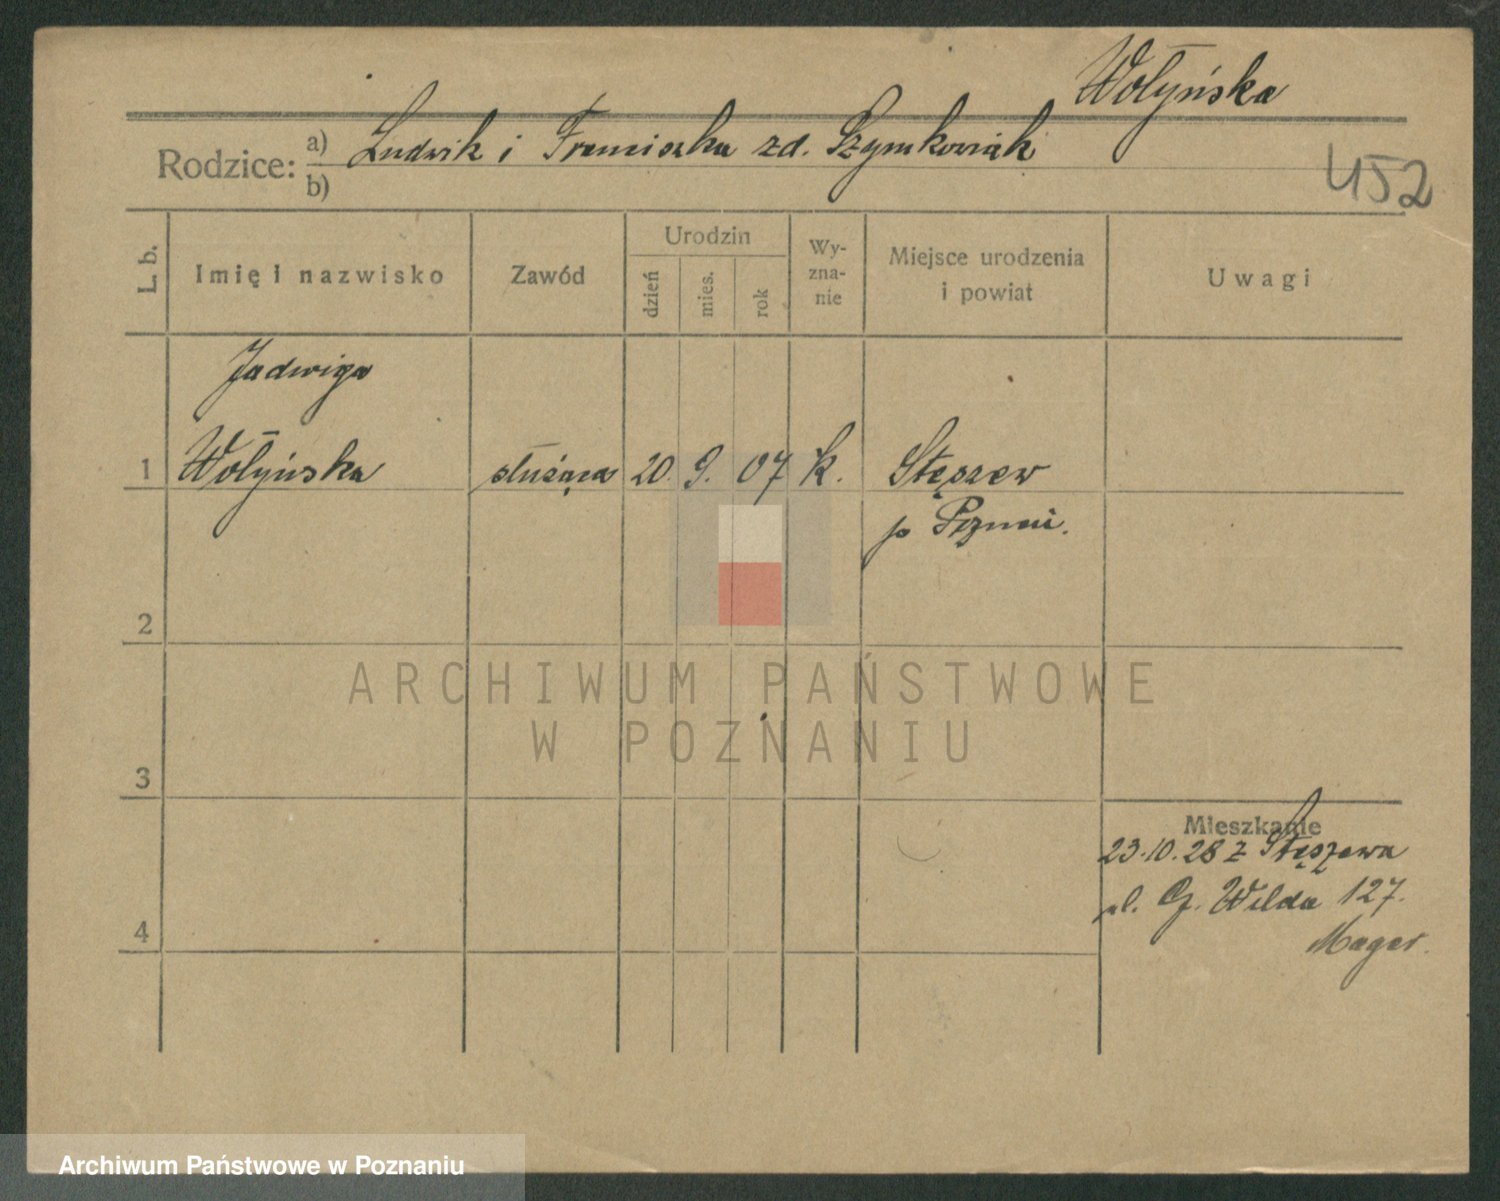 Wołyńska
Rodzice: a) Ludwik i Franciszka zd. Szymkowiak
b)
452
L. b.
Imię i nazwisko
Zawód
Urodzin
dzień
mies.
rok
Wy-
zna-
nie
Miejsce urodzenia
i powiat
Uwagi
Jadwiga
1 Wołyńska służąca 20. 9. 07 k. Stęszew
p Poznań.
2
3
4
ARCHIWUM PAŃSTWOWE
W POZNANIU
Mieszkanie
23.10.28 z Stęszewa
ul. G. Wilda 127.
Mager.
Archiwum Państwowe w Poznaniu